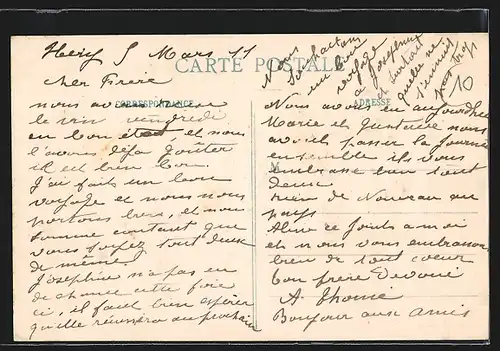 Hery 5 Mars 11
CARTE POSTALE
CORRESPONDANCE
ADRESSE
M
cher Frere
nous avons
le vin vendredi
en bon état et nous
l'avons déja gouter
il est bien bon.
J'ai fait un bon
voyage et nous nous
portons bien, et nous
somme contant que
vous soyez tout deux
de même
Joséphine n'a pas eu
de chance cette fois
ci, il faut bien espérer
qu'elle réussira au prochain
Nous avons eu aujourd'hui
Marie et Gustave nous
avons passer la journée
ensemble ils vous
embrasse bien tout
deux
rien de Nouveau au
pays
Aline ce joints a moi
et nous vous embrassons
bien de tout coeur
ton frère Devoué
A. Thomé
Bonjour aux amis
Nous
souhaitons
un bon
voyage
a Joséphine
et surtout
quelle ne
s'ennuie
pas trop
10